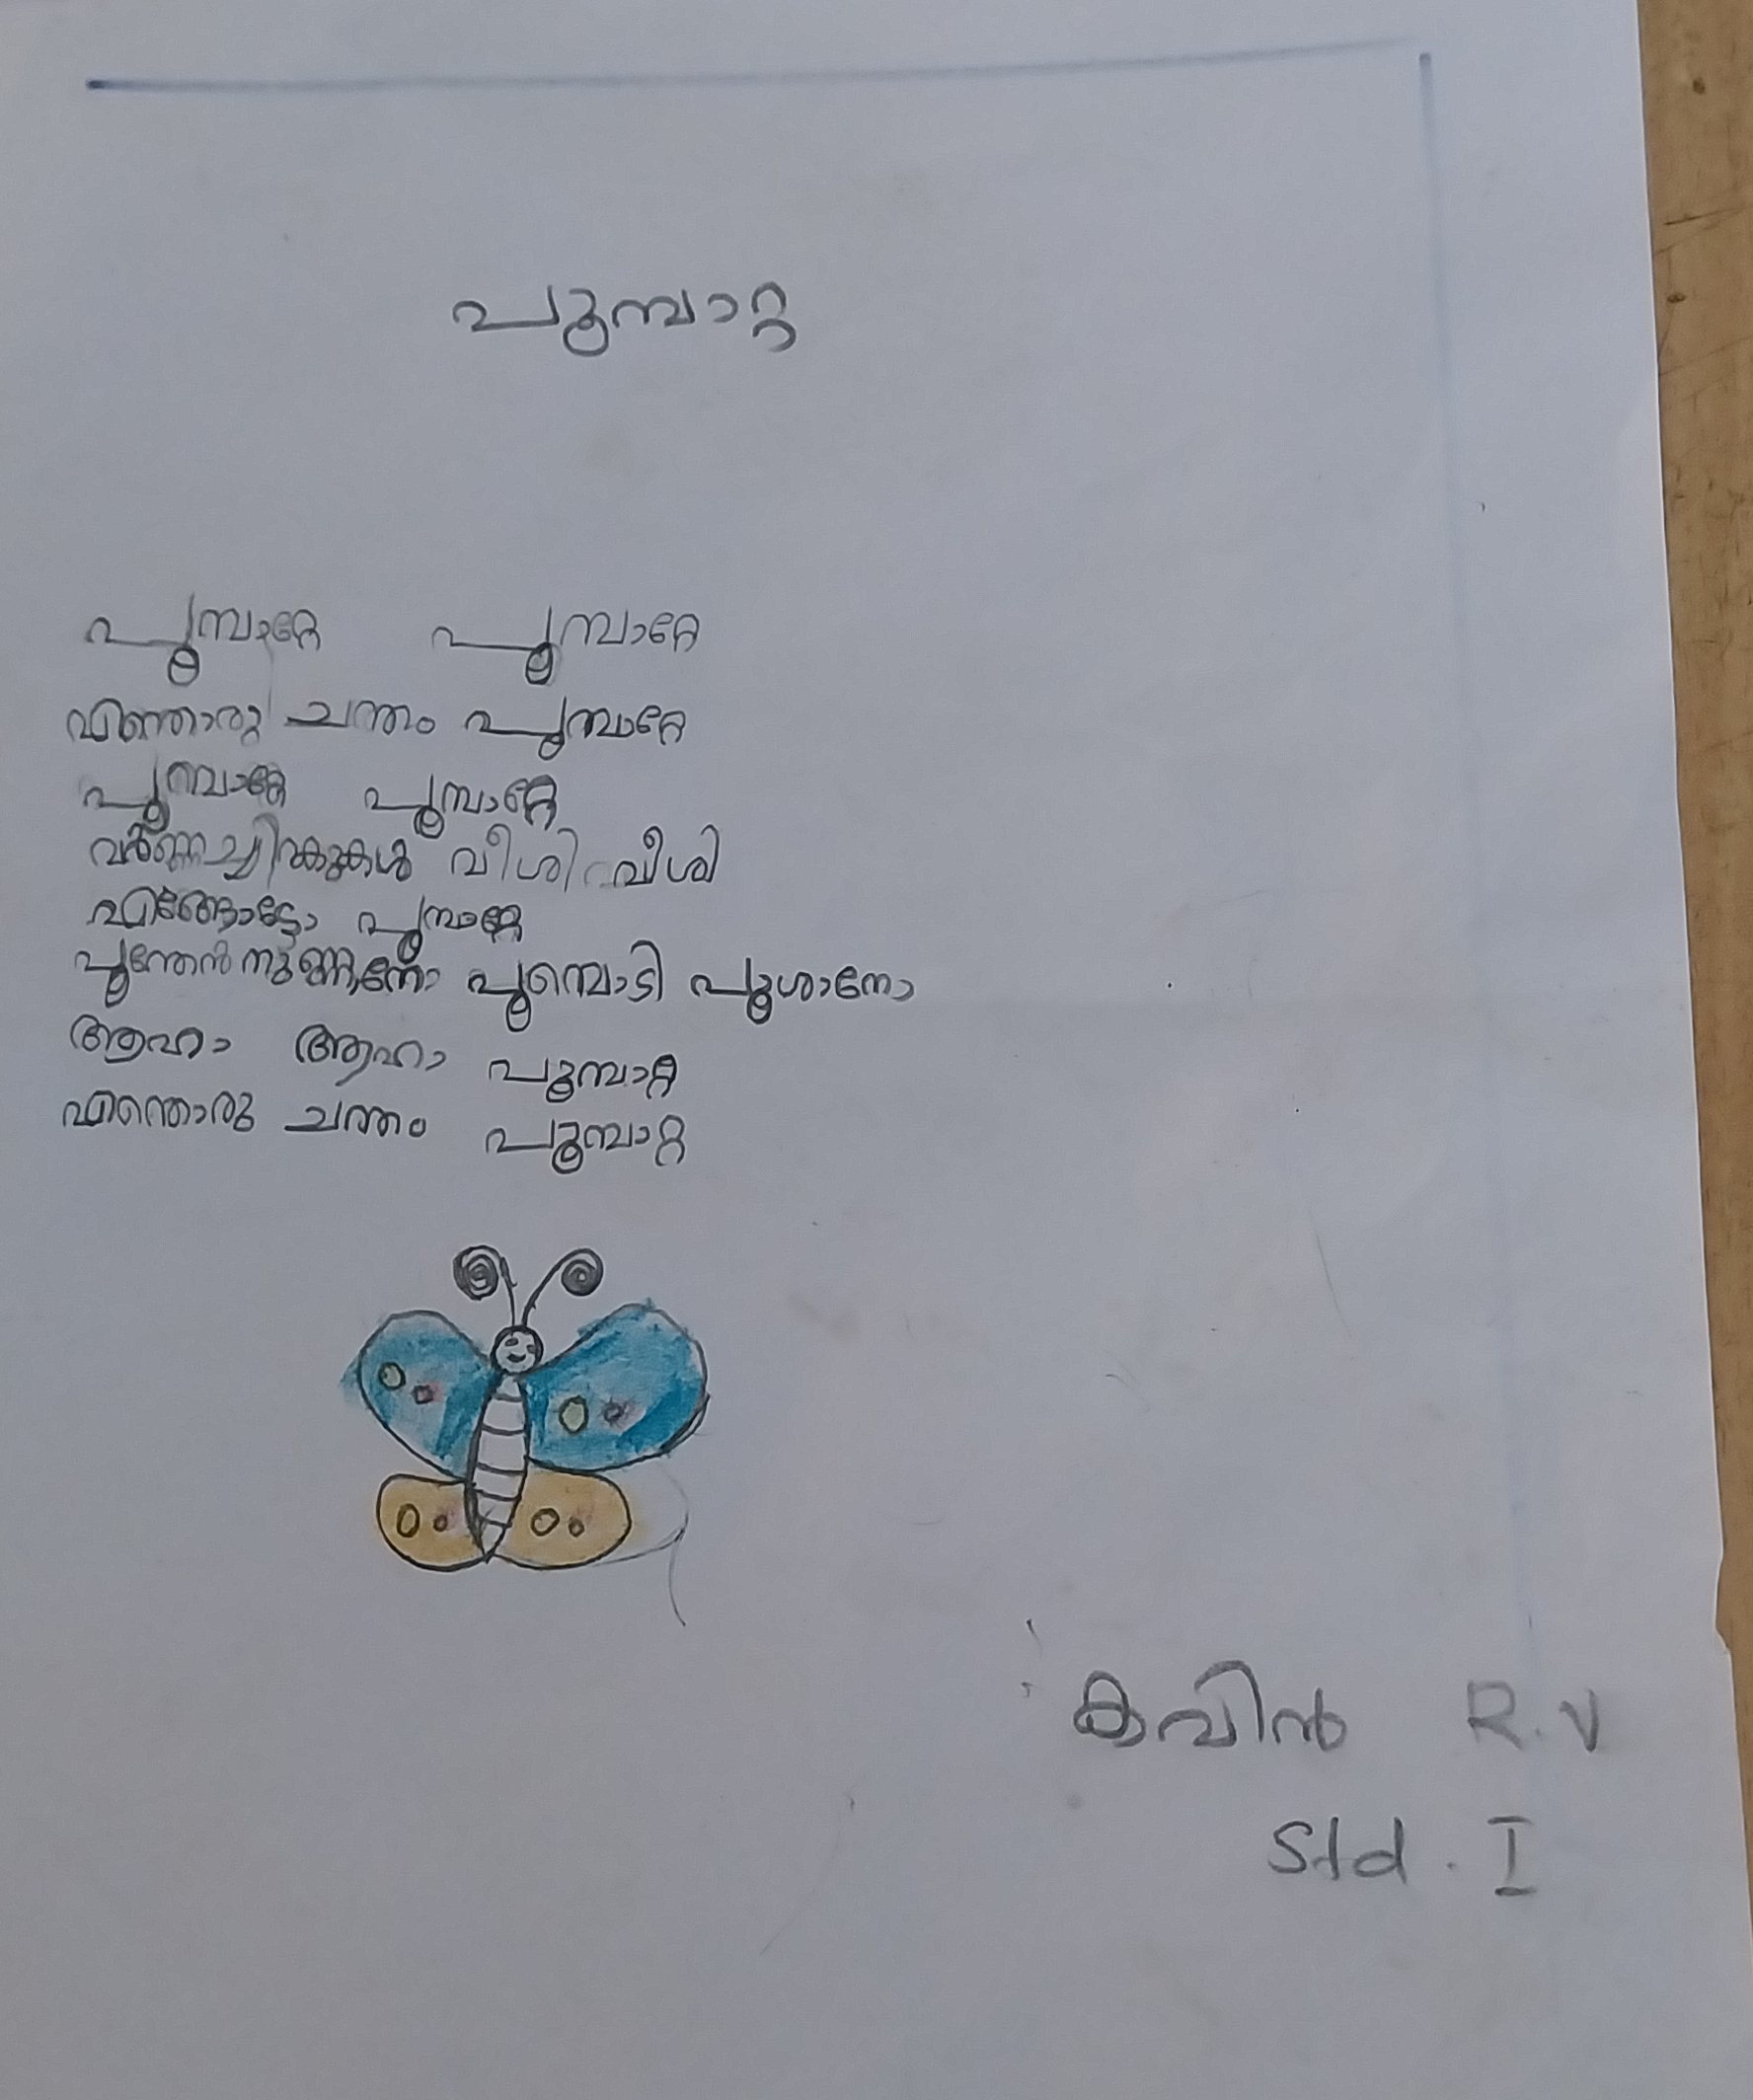 പൂമ്പാറ്റ
പൂമ്പാറ്റേ പൂമ്പാറ്റേ
എന്തൊരു ചന്തം പൂമ്പാറ്റേ
പൂമ്പാറ്റേ പൂമ്പാറ്റേ
വർണ്ണച്ചിറകുകൾ വീശി വീശി
എങ്ങോട്ടോ പൂമ്പാറ്റേ
പൂന്തേൻ നുണ്ണുന്നോ പൂമ്പൊടി പൂശാനോ
ആഹാ ആഹാ പൂമ്പാറ്റ
എന്തൊരു ചന്തം പൂമ്പാറ്റ
കവിൻ R.V
Std. I